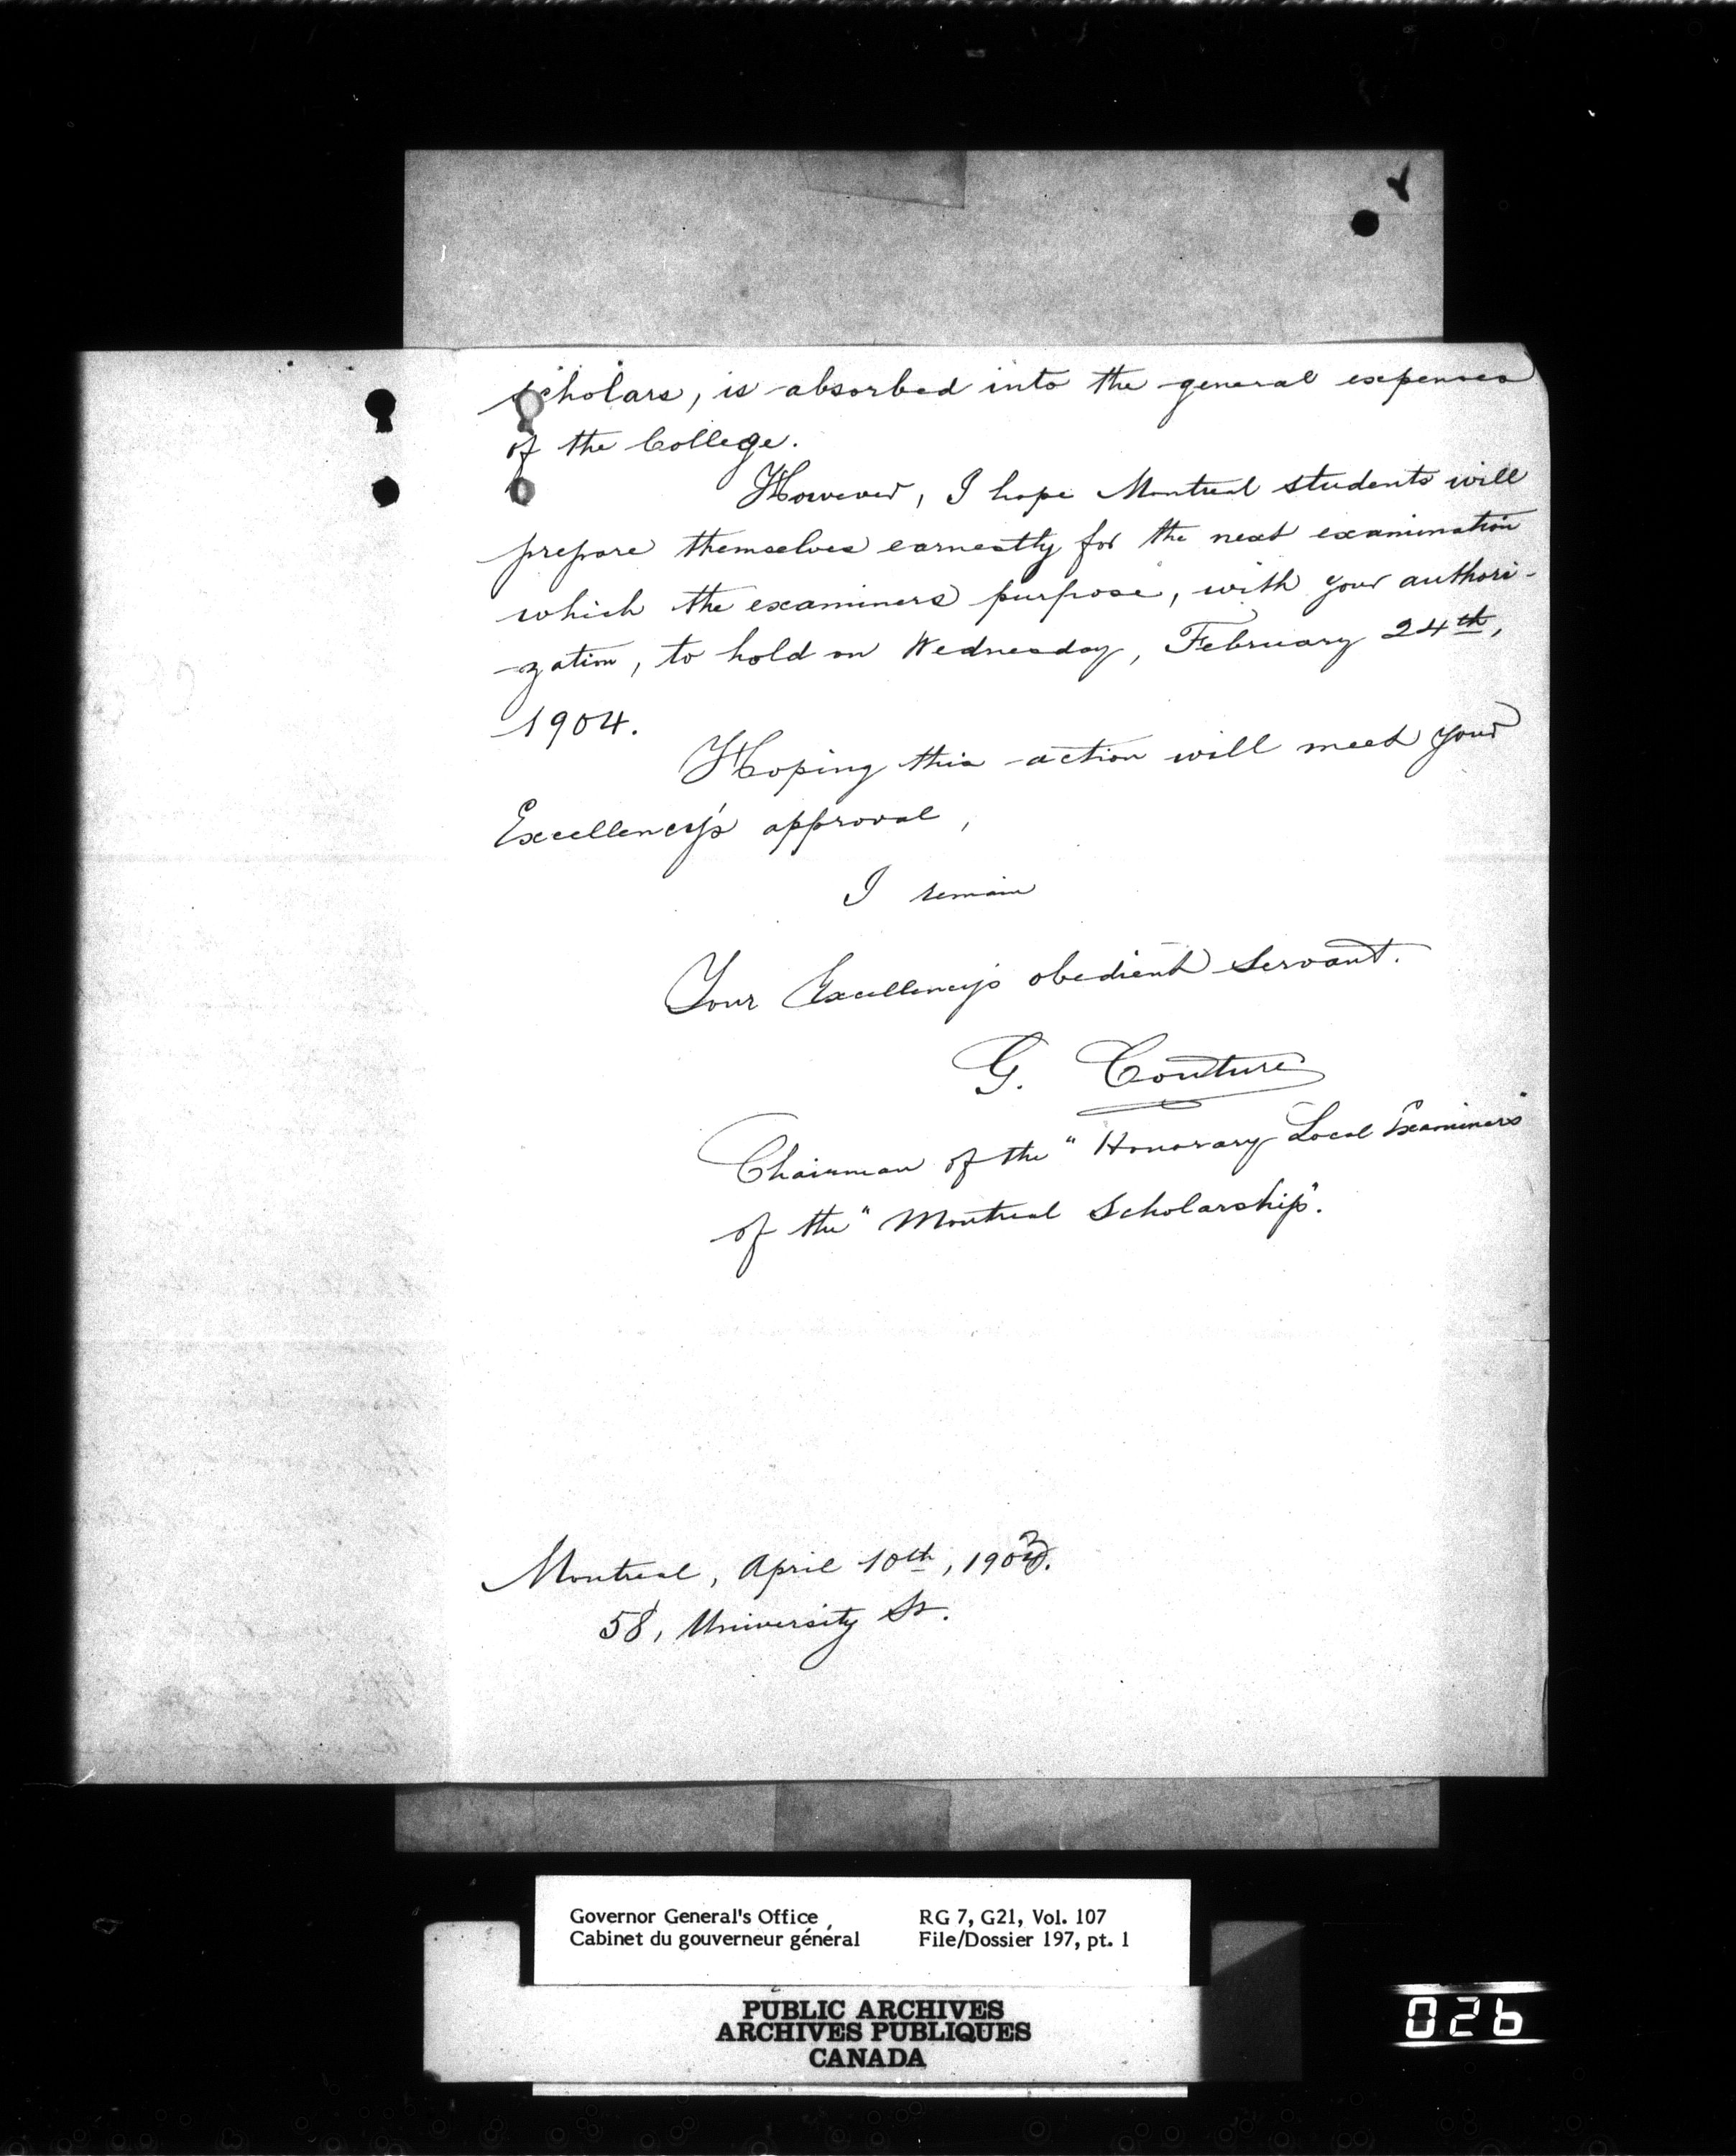 scholars, is absorbed into the general expenses
of the College.
However, I hope Montreal students will
prepare themselves earnestly for the next examination
which the examiners purpose, with your authori-
-zation, to hold on Wednesday, February 24th,
1904.
Hoping this action will meet your
Excellency's approval,
I remain
Your Excellency's obedient servant.
G. Couture
Chairman of the "Honorary Local Examiners"
of the "Montreal Scholarship".
Montreal, April 10th, 1903.
58, University St.
Governor General's Office
Cabinet du gouverneur général
RG 7, G21, Vol. 107
File/Dossier 197, pt. 1
PUBLIC ARCHIVES
ARCHIVES PUBLIQUES
CANADA
026